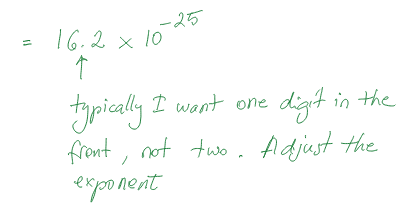 = 16.2 × 10⁻²⁵
typically I want one digit in the
front, not two. Adjust the
exponent